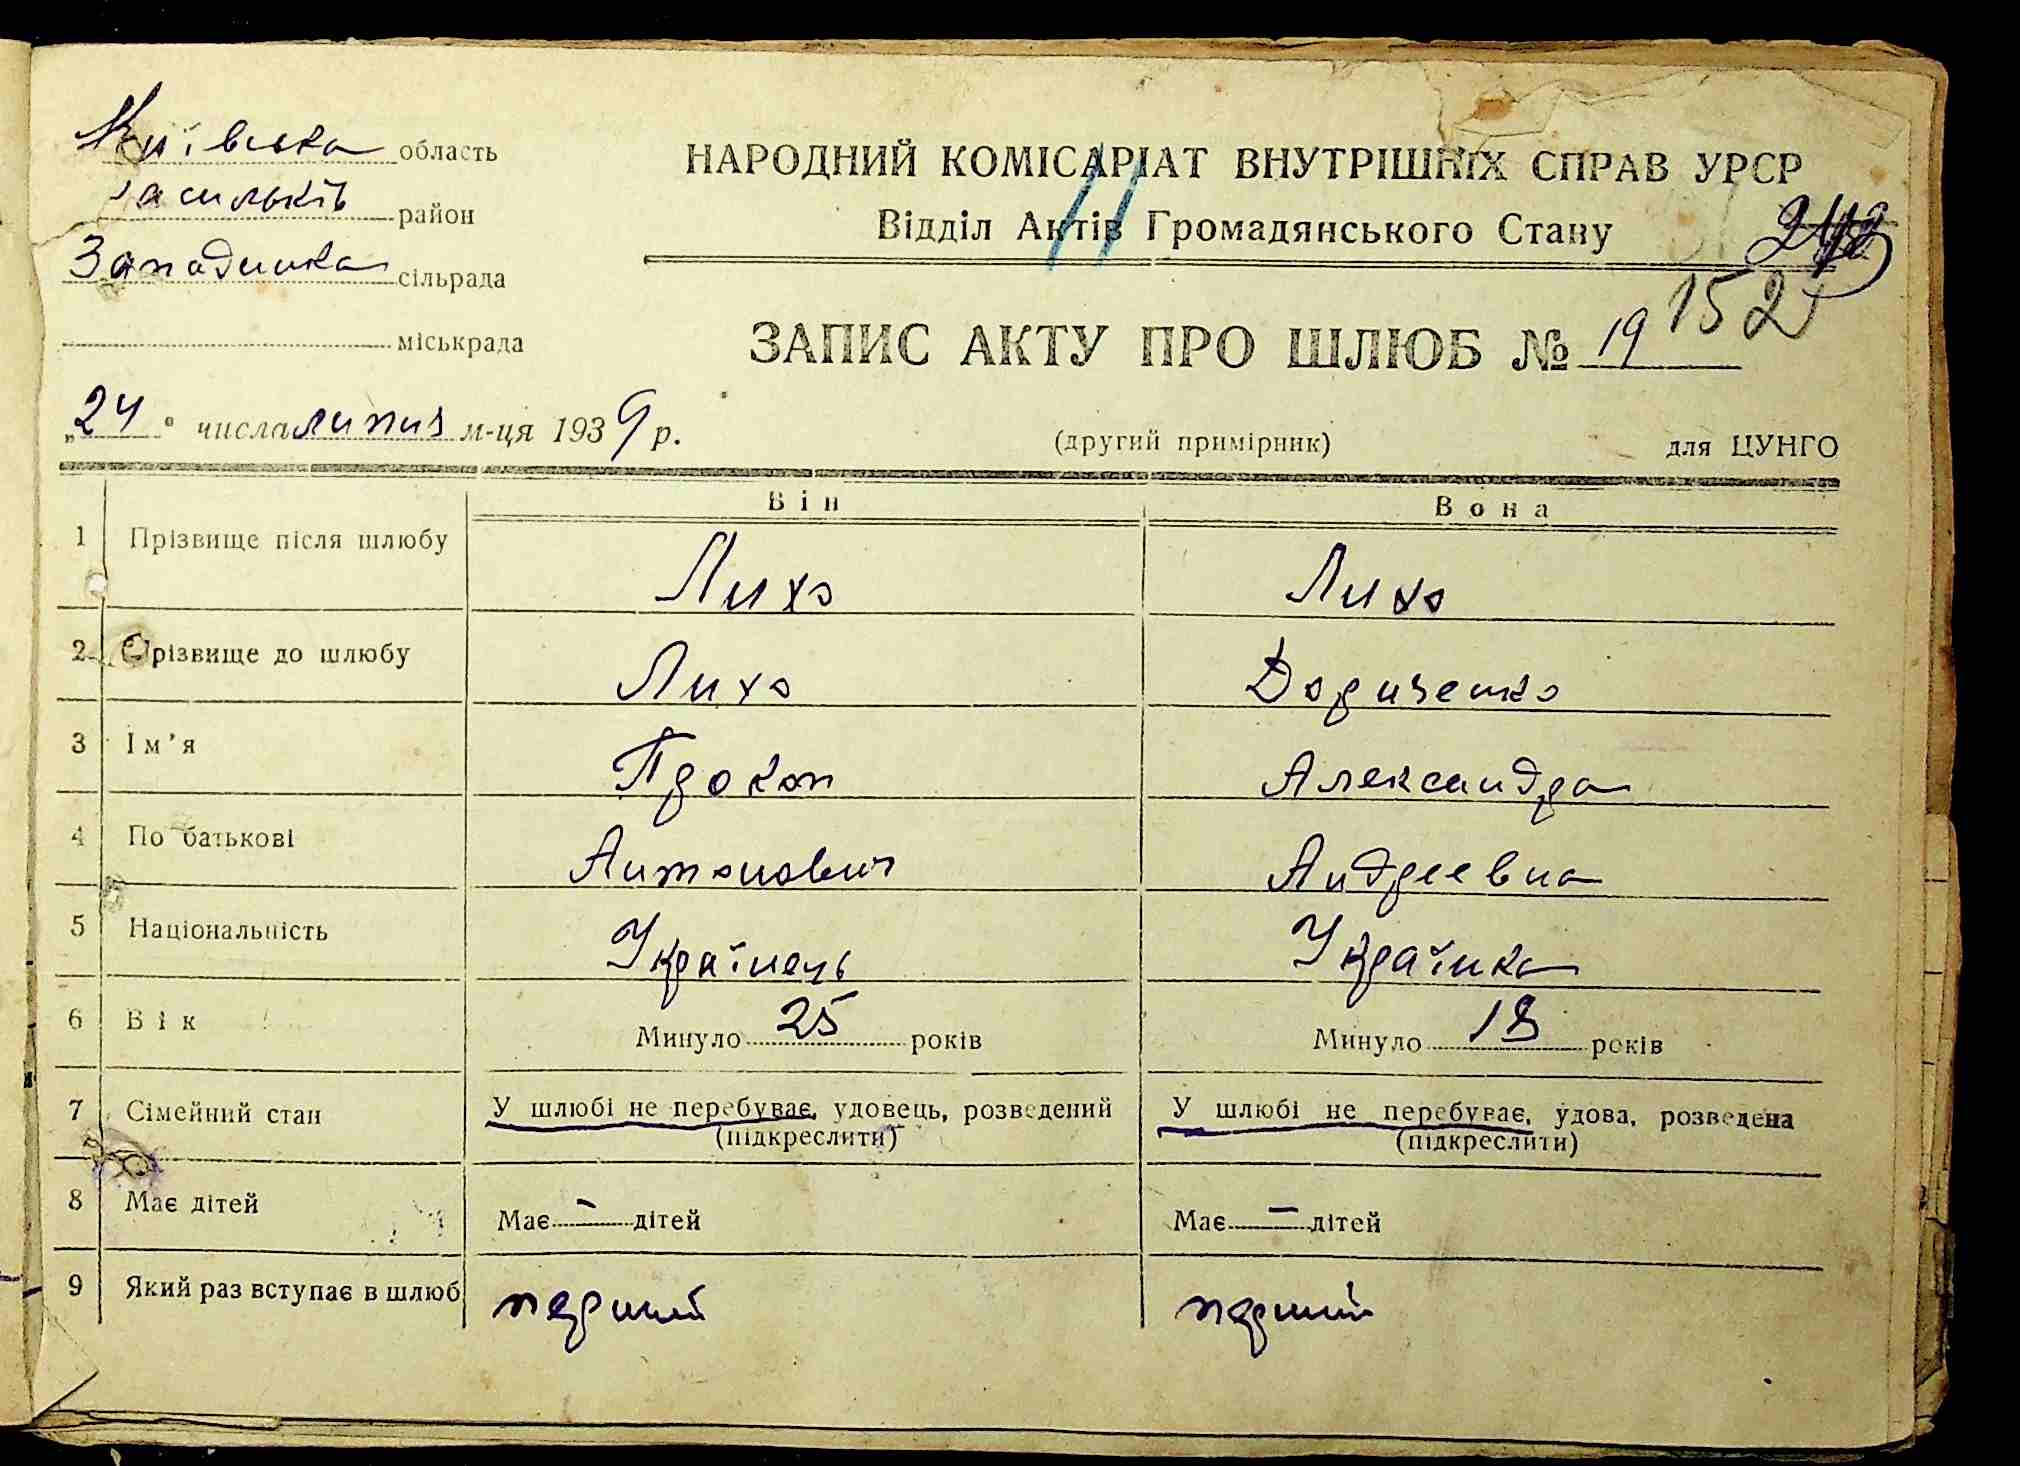 Київська область
Васильків район
Западинка сільрада
міськрада
НАРОДНИЙ КОМІСАРІАТ ВНУТРІШНІХ СПРАВ УРСР
Відділ Актів Громадянського Стану
11
152
ЗАПИС АКТУ ПРО ШЛЮБ № 19
„24" числа липня м-ця 1939 р.
(другий примірник)
для ЦУНГО
Він Вона
1 Прізвище після шлюбу Лихо Лихо
2 Прізвище до шлюбу Лихо Додиченко
3 Ім'я Прокоп Александра
4 По батькові Антонович Андреевна
5 Національність Українець Українка
6 Вік Минуло 25 років Минуло 18 років
7 Сімейний стан У шлюбі не перебуває, удовець, розведений У шлюбі не перебуває, удова, розведена
(підкреслити) (підкреслити)
8 Має дітей Має – дітей Має – дітей
9 Який раз вступає в шлюб перший перший